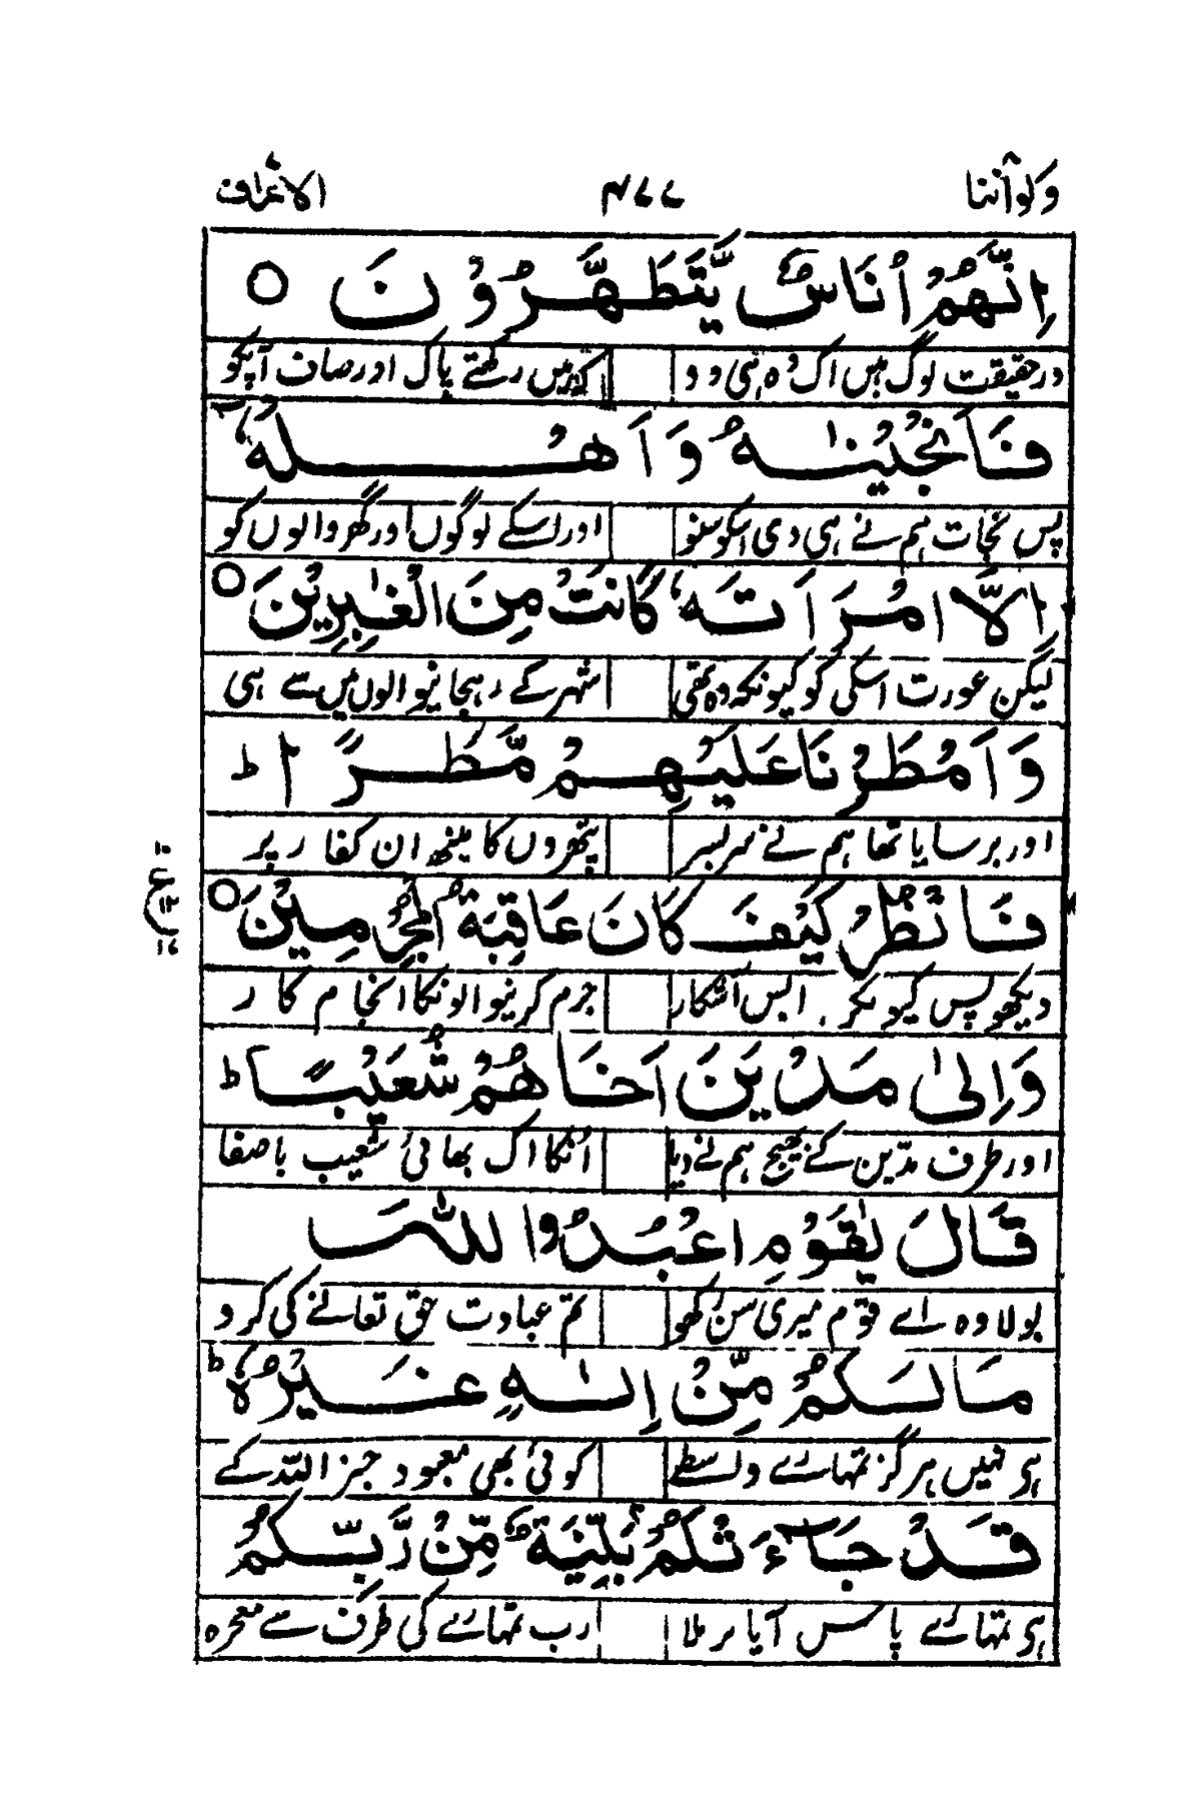 ولواننا ۴۷۷ الاعراف
اِنَّهُمْ اُنَاسٌ یَّتَطَهَّرُوْنَ ○
درحقیقت لوگ ہیں اک وہ ہی دو رکھتے پاک اور صاف آپکو
فَاَنْجَیْنٰهُ وَ اَهْلَهٗۤ
پس نجات ہم نے ہی دی اسکو سنو اور اسکے لوگوں اور گھر والوں کو
اِلَّا امْرَاَتَهٗ كَانَتْ مِنَ الْغٰبِرِیْنَ ○
لیکن عورت اسکی کو کیونکہ وہ تھی شہر کے رہجانیوالوں میں سے ہی
وَ اَمْطَرْنَا عَلَیْهِمْ مَّطَرًا ط
اور برسایا تھا ہم نے سر بسر پتھروں کا مینھ ان کفار پر
فَانْظُرْ كَیْفَ كَانَ عَاقِبَةُ الْمُجْرِمِیْنَ ○
دیکھو پس کیونکر ابس آشکار جرم کرنیوالونکا انجام کار
وَ اِلٰی مَدْیَنَ اَخَاهُمْ شُعَیْبًا ط
اور طرف مدین کے بھیج ہم نے دیا انکا اک بھائی شعیب باصفا
قَالَ یٰقَوْمِ اعْبُدُوا اللّٰهَ
بولا وہ اے قوم میری سن کھو تم عبادت حق تعالےٰ کی کرو
مَا لَكُمْ مِّنْ اِلٰهٍ غَیْرُهٗ ط
ہی نہیں ہرگز تمہارے واسطے کوئی بھی معبود جز اللہ کے
قَدْ جَآءَتْكُمْ بَیِّنَةٌ مِّنْ رَّبِّكُمْ
ہی تمہارے پاس آیا بر ملا رب تمہارے کی طرف سے معجزہ
۱۰
ع
۱۲
۱۷